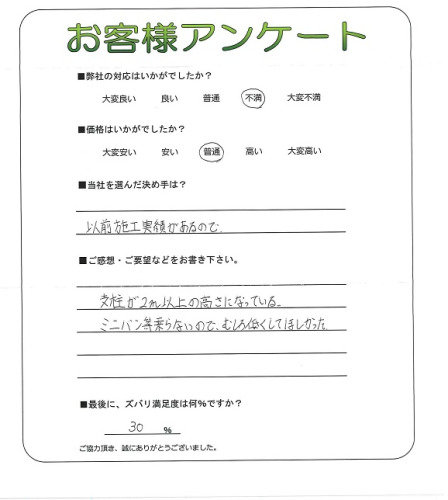 お客様アンケート
■弊社の対応はいかがでしたか？
大変良い 良い 普通 不満 大変不満
■価格はいかがでしたか？
大変安い 安い 普通 高い 大変高い
■当社を選んだ決め手は？
以前施工実績があるので、
■ご感想・ご要望などをお書き下さい。
支柱が2m以上の高さになっている。
ミニバン等乗らないので、むしろ低くしてほしかった
■最後に、ズバリ満足度は何%ですか？
30 %
ご協力頂き、誠にありがとうございました。